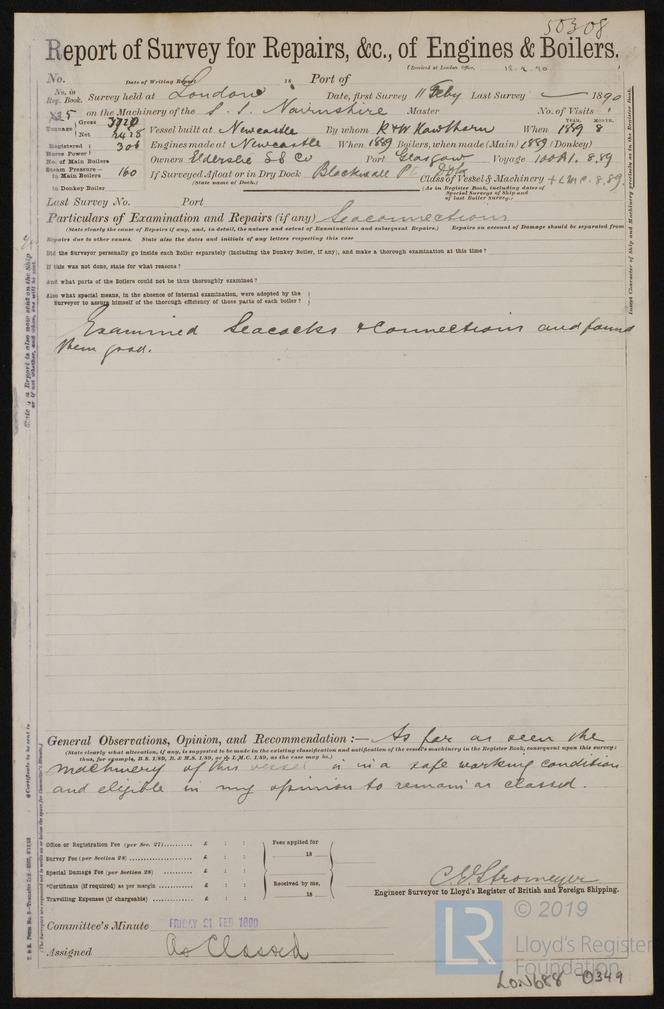 50308
Report of Survey for Repairs, &c., of Engines & Boilers.
(Received at London Office,
No. Date of Writing Report 18 Port of
No. in Reg. Book. Survey held at London Date, first Survey 11 Feby Last Survey 1890
on the Machinery of the S. S. Nairnshire Master No. of Visits 1
Tonnage Gross 3720
Net 2425 Vessel built at Newcastle By whom R & W Hawthorn When 1889 8
YEAR. MONTH.
Registered Horse Power 306 Engines made at Newcastle When 1889 Boilers, when made (Main) 1889 (Donkey)
No. of Main Boilers Owners Elderslie SS Co Port Glasgow Voyage 100A1. 8.89
Steam Pressure— in Main Boilers 160 If Surveyed Afloat or in Dry Dock Blackwall Pt Class of Vessel & Machinery + L.M.C. 8.89.
(State name of Dock.) (As in Register Book, including dates of Special Surveys of Ship and of last Boiler Survey.)
in Donkey Boiler
Last Survey No. Port
Particulars of Examination and Repairs (if any) Seaconnections
(State clearly the cause of Repairs if any, and, in detail, the nature and extent of Examinations and subsequent Repairs.) Repairs on account of Damage should be separated from
Repairs due to other causes. State also the dates and initials of any letters respecting this case
Did the Surveyor personally go inside each Boiler separately (including the Donkey Boiler, if any), and make a thorough examination at this time?
If this was not done, state for what reasons?
And what parts of the Boilers could not be thus thoroughly examined?
Also what special means, in the absence of internal examination, were adopted by the
Surveyor to assure himself of the thorough efficiency of those parts of each boiler?
Examined Seacocks & Connections and found
them good.
General Observations, Opinion, and Recommendation :— As far as seen the
(State clearly what alteration, if any, is suggested to be made in the existing classification and notification of the vessel's machinery in the Register Book, consequent upon this survey;
thus, for example, B.S. 1/89, B. & M.S. 1/89, or L.M.C. 1/89, as the case may be.)
machinery of this vessel is in a safe working condition
and eligible in my opinion to remain as classed.
Office or Registration Fee (per Sec. 27) £ : : Fees applied for
Survey Fee (per Section 28) £ : : 18
Special Damage Fee (per Section 28) £ : :
*Certificate (if required) as per margin £ : : Received by me,
Travelling Expenses (if chargeable) £ : : 18
C. E. Stromeyer
Engineer Surveyor to Lloyd's Register of British and Foreign Shipping.
Committee's Minute FRIDAY 21 FEB 1890
Assigned As Classed
Insert Character of Ship and Machinery precisely as in the Register Book.
© 2019
LR Lloyd's Register
Foundation
LON688-0349